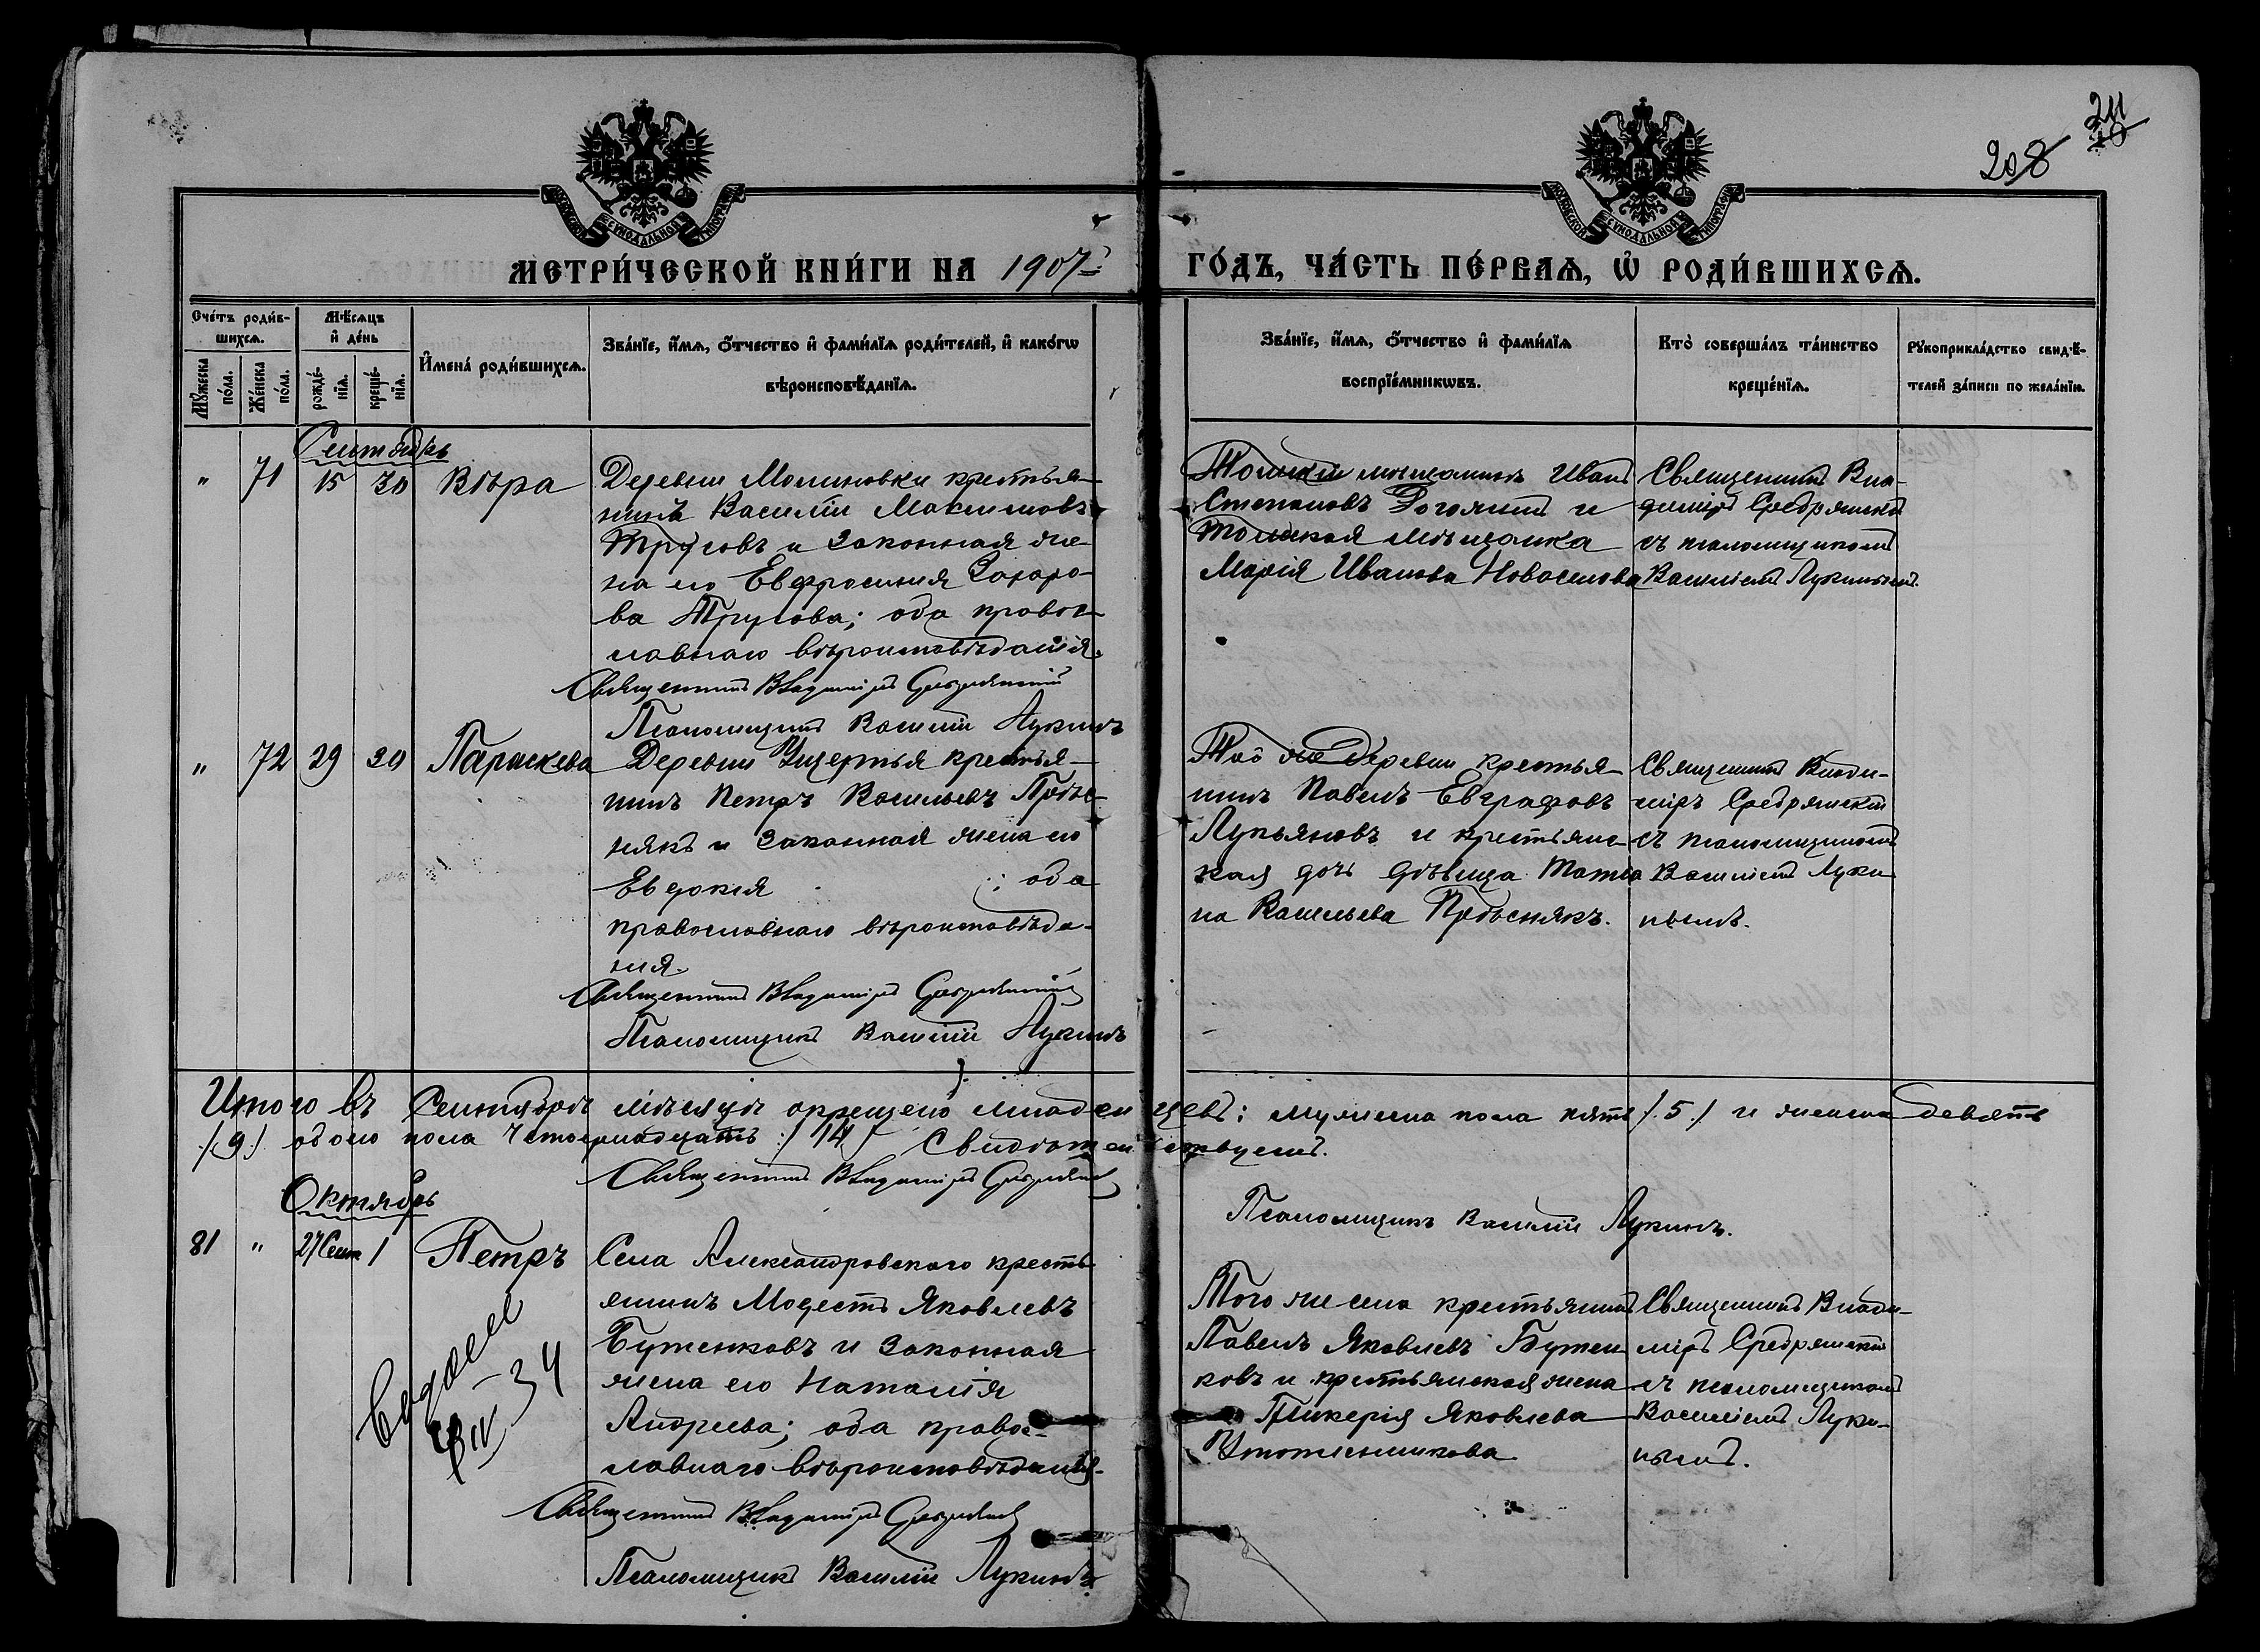 208
211
МЕТРИ́ЧЕСКОЙ КНИ́ГИ НА 1907 ГО́ДЪ, ЧА́СТЬ ПЕ́РВАѦ, Ѡ҆ РОДИ́ВШИХСѦ.
Сче́тъ роди́вшихсѧ.
Мѣ́сѧцъ и҆ де́нь
Мꙋ́жеска по́ла.
Же́нска по́ла.
рожде́нїѧ.
креще́нїѧ.
И҆мена̀ роди́вшихсѧ.
Зва́нїе, и҆́мѧ, ѻ҆́тчество и҆ фамилїѧ роди́телей, и҆ како́гѡ
вѣроисповѣ́данїѧ.
Зва́нїе, и҆́мѧ, ѻ҆́тчество и҆ фамилїѧ
воспрїе́мникѡвъ.
Кто̀ соверша́лъ та́инство
креще́нїѧ.
Рꙋкоприкла́дство свидѣ́-
телей за́писи по жела́нїю.
Сентябрь
" 71 15 30 Вѣра
Деревни Малиновки крестья-
нинъ Василій Максимовъ
Трусовъ и законная же-
на его Евфросинія Захаро-
ва Трусова; оба правос-
лавнаго вѣроисповѣданія.
Священникъ Владиміръ Сребрянскій
Псаломщикъ Василій Лукинъ
Томскій мѣщанинъ Иванъ
Степановъ и
Томская мѣщанка
Марія Иванова Новоселова
Священникъ Вла-
диміръ Сребрянскій
съ псаломщикомъ
Василіемъ Лукинымъ.
" 72 29 30 Параскева
Деревни крестья-
нинъ Петръ Васильевъ Подъс-
някъ и законная жена его
Евдокія ; оба
православнаго вѣроисповѣда-
нія.
Священникъ Владиміръ Сребрянскій
Псаломщикъ Василій Лукинъ
Той же деревни крестья-
нинъ Павелъ Евграфовъ
Лукьяновъ и крестьянс-
кая дочь дѣвица Татья
на Васильева Подъснякъ.
Священникъ Влади-
міръ Сребрянскій
съ псаломщикомъ
Василіемъ Луки-
нымъ.
Итого въ Сентябрѣ мѣсяцѣ окрещено младенцевъ: мужеска пола пять /.5./ и женска девять
/.9./ обоего пола четырнадцать /.14./ Свидѣтельствуемъ.
Священникъ Владиміръ Сребрянскій
Псаломщикъ Василій Лукинъ.
Октябрь
81 " 27 Сент 1 Петръ
Села Александровскаго кресть-
янинъ Модестъ Яковлевъ
Бутенковъ и законная
жена его Наталія
Андреева; оба правос-
лавнаго вѣроисповѣданія.
Священникъ Владиміръ Сребрянскій
Псаломщикъ Василій Лукинъ
Того же села крестьянинъ
Павелъ Яковлевъ Бутен
ковъ и крестьянская жена
Гликерія Яковлева
Утотленникова
Священникъ Влади-
міръ Сребрянскій
съ псаломщикомъ
Василіемъ Луки-
нымъ.
IV-34